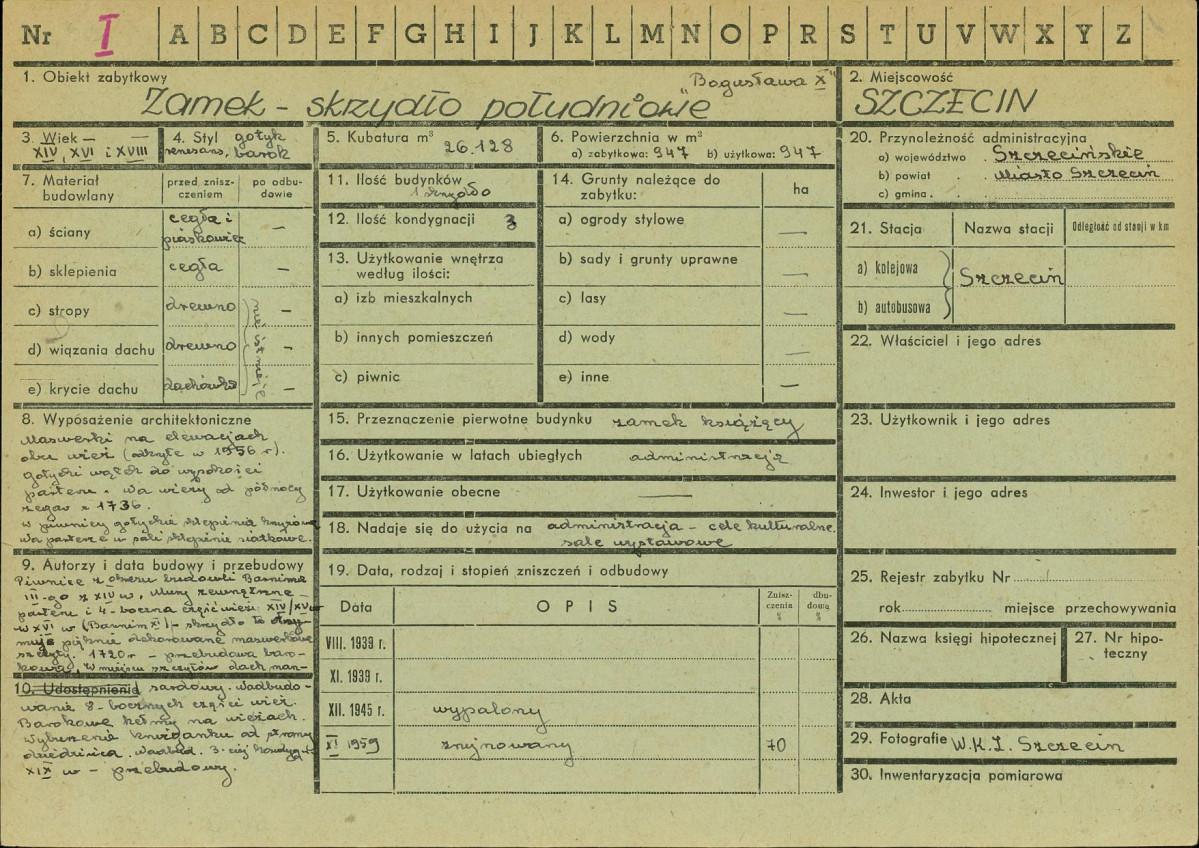 Nr I A B C D E F G H I J K L M N O P R S T U V W X Y Z
1. Obiekt zabytkowy
Zamek - skrzydło południowe „Bogusława X"
2. Miejscowość
SZCZECIN
3. Wiek —
XIV, XVI i XVIII
4. Styl gotyk
renesans, barok
5. Kubatura m³ 26.128
6. Powierzchnia w m³
a) zabytkowa: 947 b) użytkowa: 947
7. Materiał budowlany
przed zniszczeniem
po odbudowie
a) ściany cegła i piaskowiec —
b) sklepienia cegła —
c) stropy drewno —
d) wiązania dachu drewno —
e) krycie dachu dachówka —
nie istnieje
8. Wyposażenie architektoniczne
Maswerki na elewacjach
obu wież (odkryte w 1956 r).
gotycki wątek do wysokości
parteru. Na wieży od północy
zegar z 1736.
w piwnicy gotyckie sklepienia krzyżowe
Na parterze w sali sklepienie siatkowe.
9. Autorzy i data budowy i przebudowy
Piwnice z okresu budowli Barnima
III-go z XIV w, Mury zewnętrzne
parteru i 4-boczna część wież XIV/XV w
w XVI w (Barnim XI) - skrzydło to otrzy-
muje pięknie dekorowane maswerkowe
szczyty. 1720 r - przebudowa baro-
kowa, W miejscu szczytów dach man-
10. Udostępnienie
sardowy. Nadbudo-
wanie 8-bocznych części wież.
Barokowe hełmy na wieżach.
Wyburzenie krużganku od strony
dziedzińca. Nadbud. 3-ciej kondygn.
XIX w - przebudowy.
11. Ilość budynków
1 skrzydło
12. Ilość kondygnacji 3
13. Użytkowanie wnętrza według ilości:
a) izb mieszkalnych
b) innych pomieszczeń
c) piwnic
14. Grunty należące do zabytku: ha
a) ogrody stylowe —
b) sady i grunty uprawne —
c) lasy —
d) wody —
e) inne —
15. Przeznaczenie pierwotne budynku zamek książęcy
16. Użytkowanie w latach ubiegłych administracja
17. Użytkowanie obecne —
18. Nadaje się do użycia na administracja - cele kulturalne
sale wystawowe
19. Data, rodzaj i stopień zniszczeń i odbudowy
Data OPIS Zniszczenia % dbudowa %
VIII. 1939 r.
XI. 1939 r.
XII. 1945 r. wypalony
XI 1959 zrujnowany 70
20. Przynależność administracyjna
a) województwo Szczecińskie
b) powiat Miasto Szczecin
c) gmina
21. Stacja Nazwa stacji Odległość od stacji w km
a) kolejowa
b) autobusowa
Szczecin
22. Właściciel i jego adres
23. Użytkownik i jego adres
24. Inwestor i jego adres
25. Rejestr zabytku Nr
rok miejsce przechowywania
26. Nazwa księgi hipotecznej
27. Nr hipoteczny
28. Akta
29. Fotografie W.K.Z. Szczecin
30. Inwentaryzacja pomiarowa